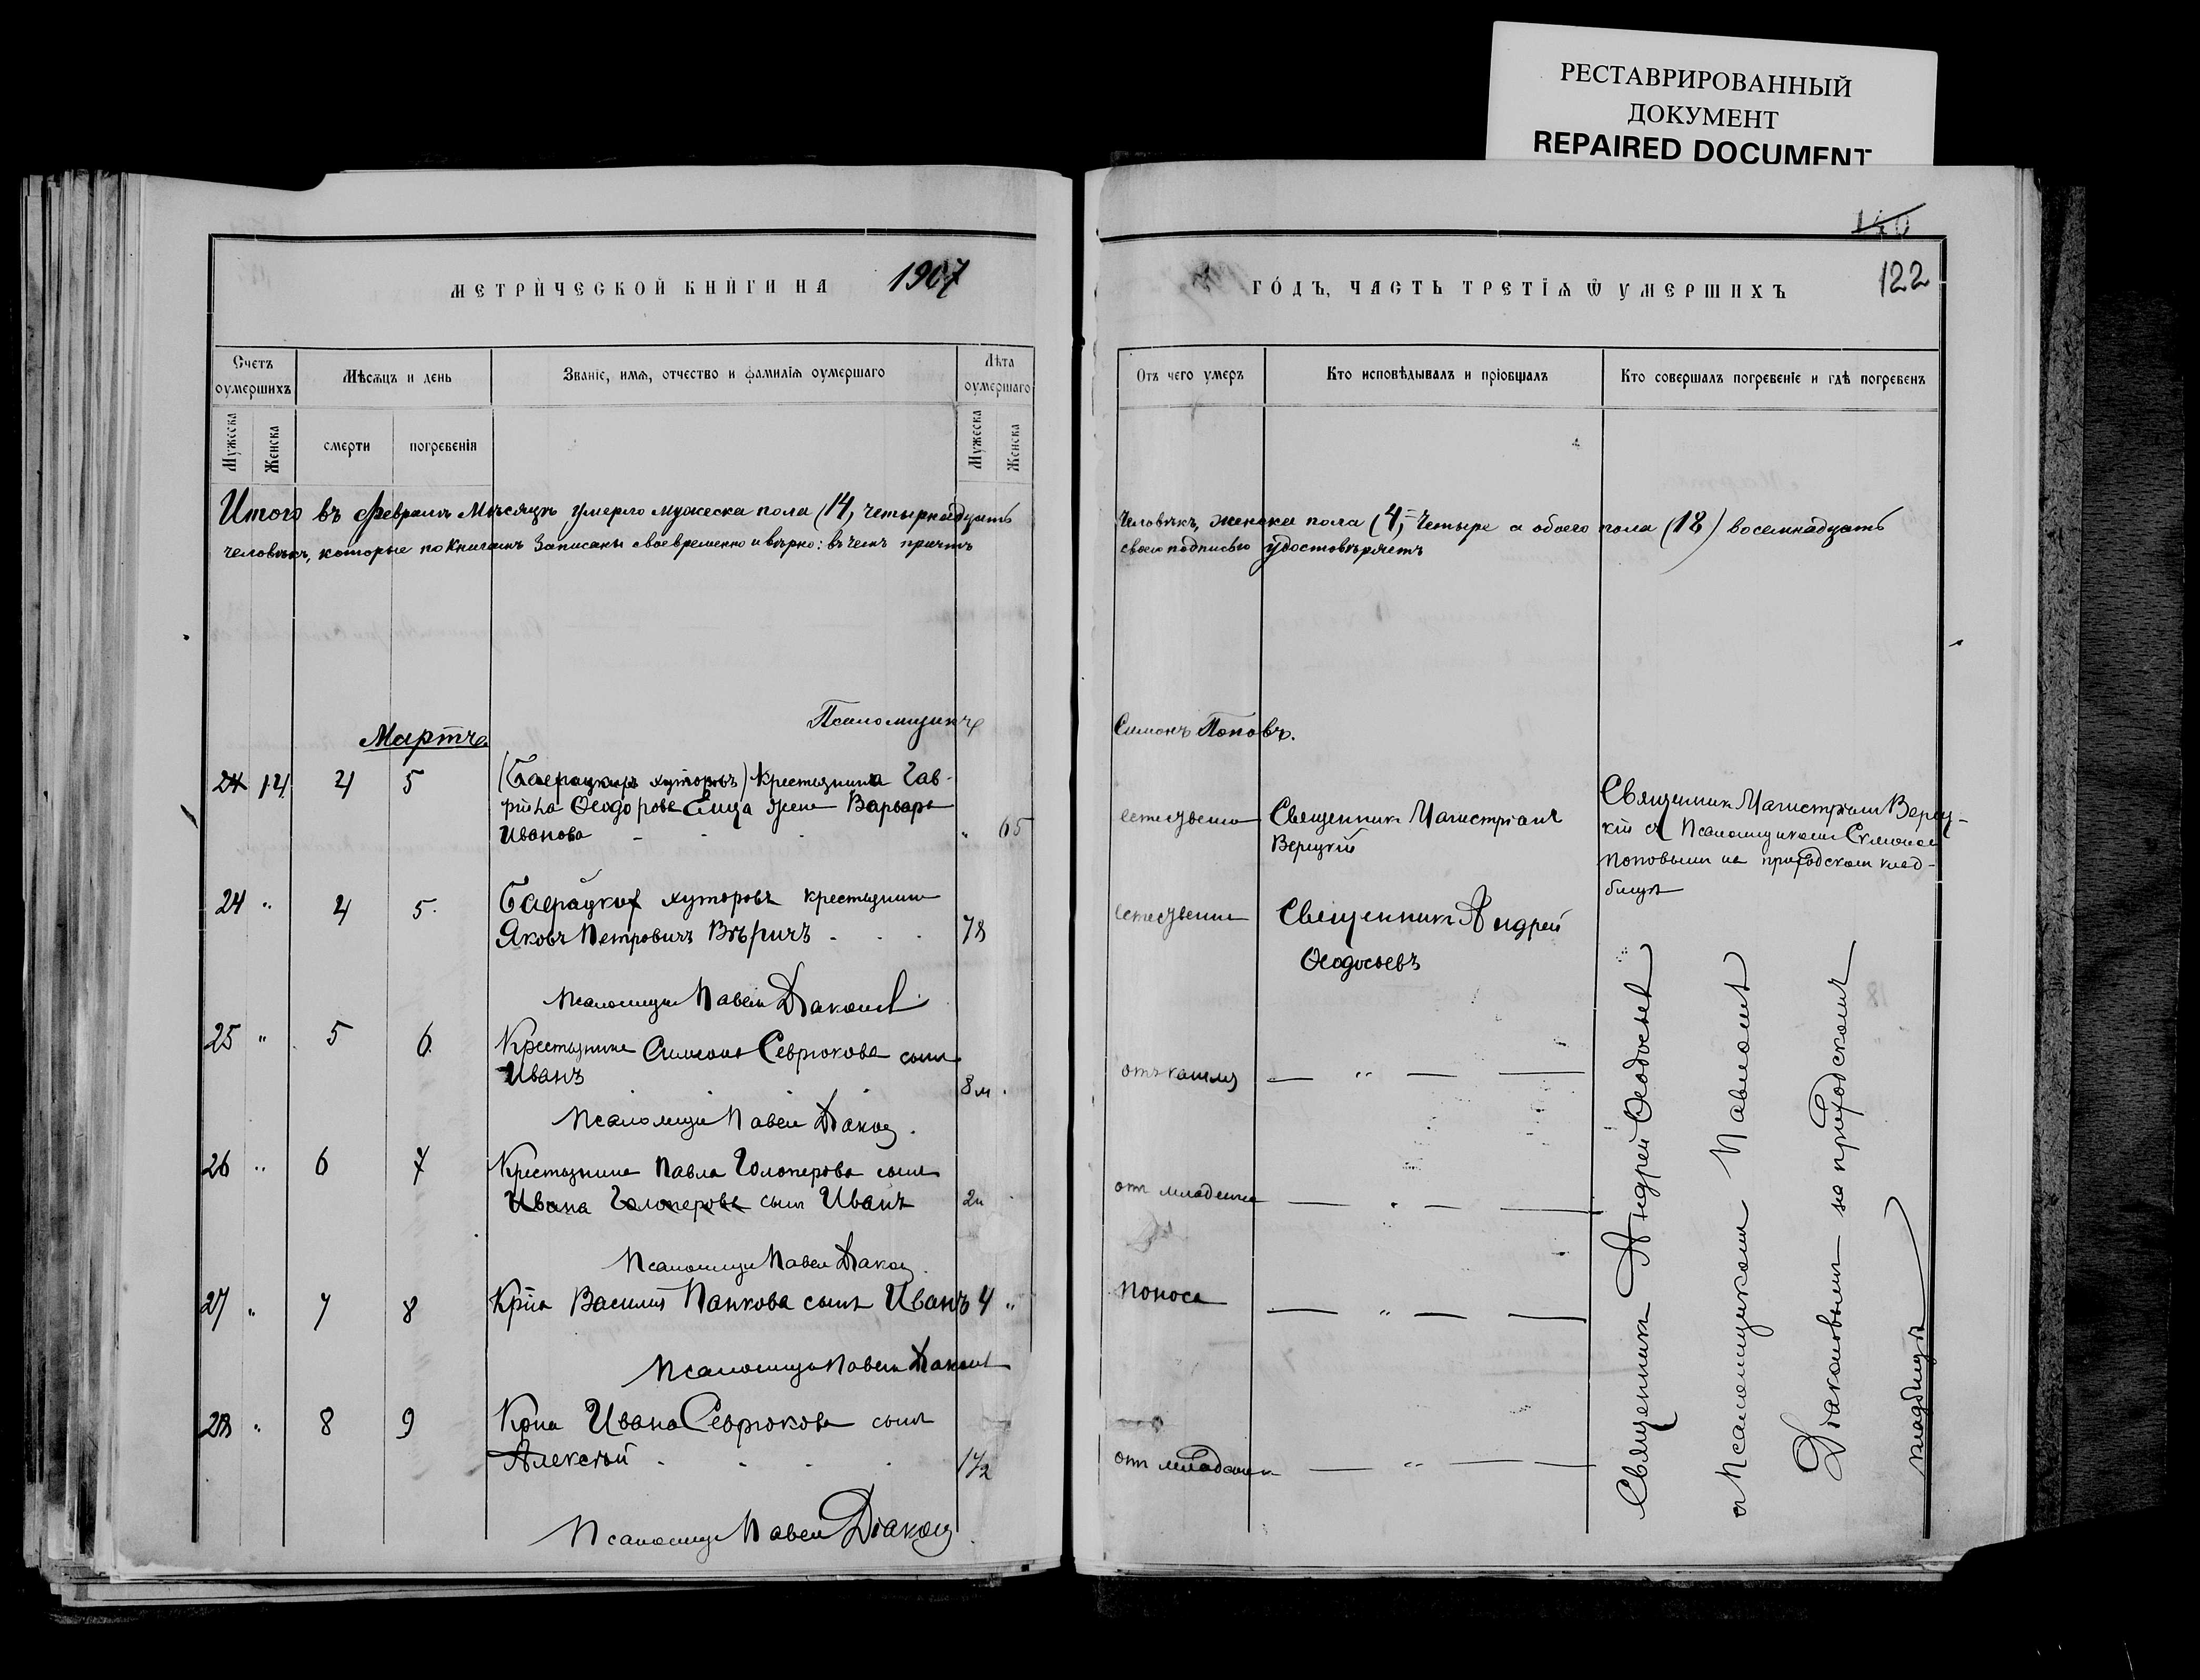 РЕСТАВРИРОВАННЫЙ
ДОКУМЕНТ
REPAIRED DOCUMENT
140
122
МЕТРИЧЕСКОЙ КНИГИ НА 1907
ГОДЪ, ЧАСТЬ ТРЕТІѦ Ѿ УМЕРШИХЪ
Счетъ оумершихъ
Мѣсѧцъ и день
Званіе, имѧ, отчество и фамиліѧ оумершаго
Лѣта оумершаго
Мужеска
Женска
смерти
погребеніѧ
Мужеска
Женска
Отъ чего умеръ
Кто исповѣдывалъ и пріобщалъ
Кто совершалъ погребеніе и гдѣ погребенъ
Итого въ Февралѣ Мѣсяцѣ умерло мужеска пола (14, четырнадцать
человѣкъ, которые по книгамъ записаны своевременно и вѣрно: въ чемъ причтъ
человѣкъ, женска пола (4, четыре а обоего пола (18) восемнадцать
своею подписью удостовѣряетъ
Псаломщикъ
Симонъ Поповъ.
Мартъ
24 14 4 5 хуторовъ) Крестьянина Гав-
Ѳеодорова жена Варвара
Иванова " 65
естественно
Священникъ
Верецкій
Священникъ Верец-
кій съ Псаломщикомъ Симономъ
Поповымъ на приходскомъ клад-
бищѣ
24 " 4 5. хуторовъ крестьянинъ
Яковъ Петровичъ 78
естественно
Священникъ Андрей
Ѳеодосьевъ
Псаломщикъ Павелъ Діаконовъ
25 " 5 6. Крестьянина Симеона Севрюкова сынъ
Иванъ 8 м.
отъ кашля — " — —
Псаломщикъ Павелъ Діаконовъ
26 " 6 7 Крестьянина Павла Голоперова сынъ
Ивана Голоперова сынъ Иванъ 2н
отъ младенч — " — —
Псаломщикъ Павелъ Діаконовъ
27 " 7 8 Кр-на Василія Панкова сынъ Иванъ 4 "
поноса — " — —
Псаломщикъ Павелъ Діаконовъ
28 " 8 9 Кр-на Ивана Севрюкова сынъ
Алексѣй 1½
отъ младенч — " — —
Псаломщикъ Павелъ Діаконовъ
Священникъ Андрей Ѳеодосьевъ
съ Псаломщикомъ Павломъ
Діаконовымъ на приходскомъ
кладбищѣ